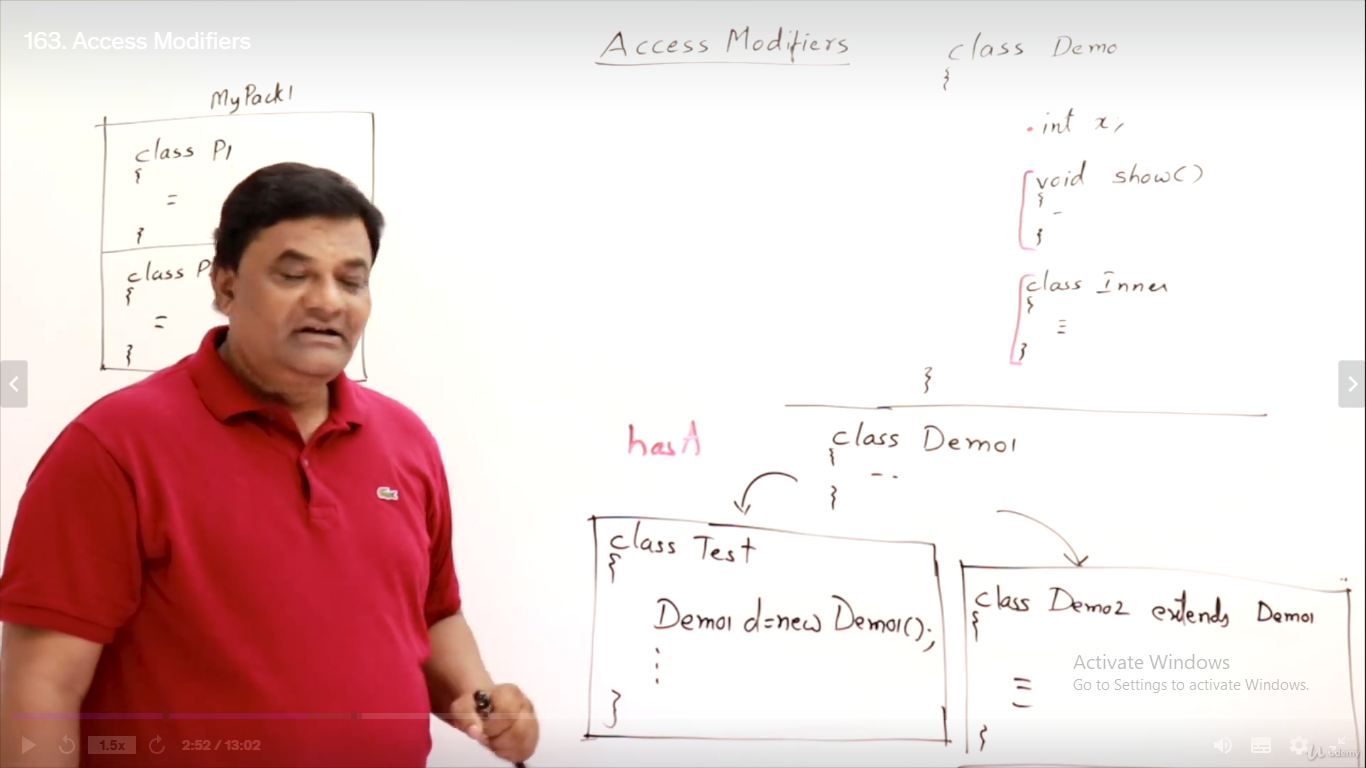 163. Access Modifiers
Access Modifiers
MyPack1
class P1
{
=
}
class P
{
=
}
class Demo
{
int x;
void show()
{
-
}
class Inner
{
≡
}
}
hasA
class Demo1
{
-- 
}
class Test
{
Demo1 d=new Demo1();
⋮
}
class Demo2 extends Demo1
{
≡
}
Activate Windows
Go to Settings to activate Windows.
1.5x
2:52 / 13:02
Udemy